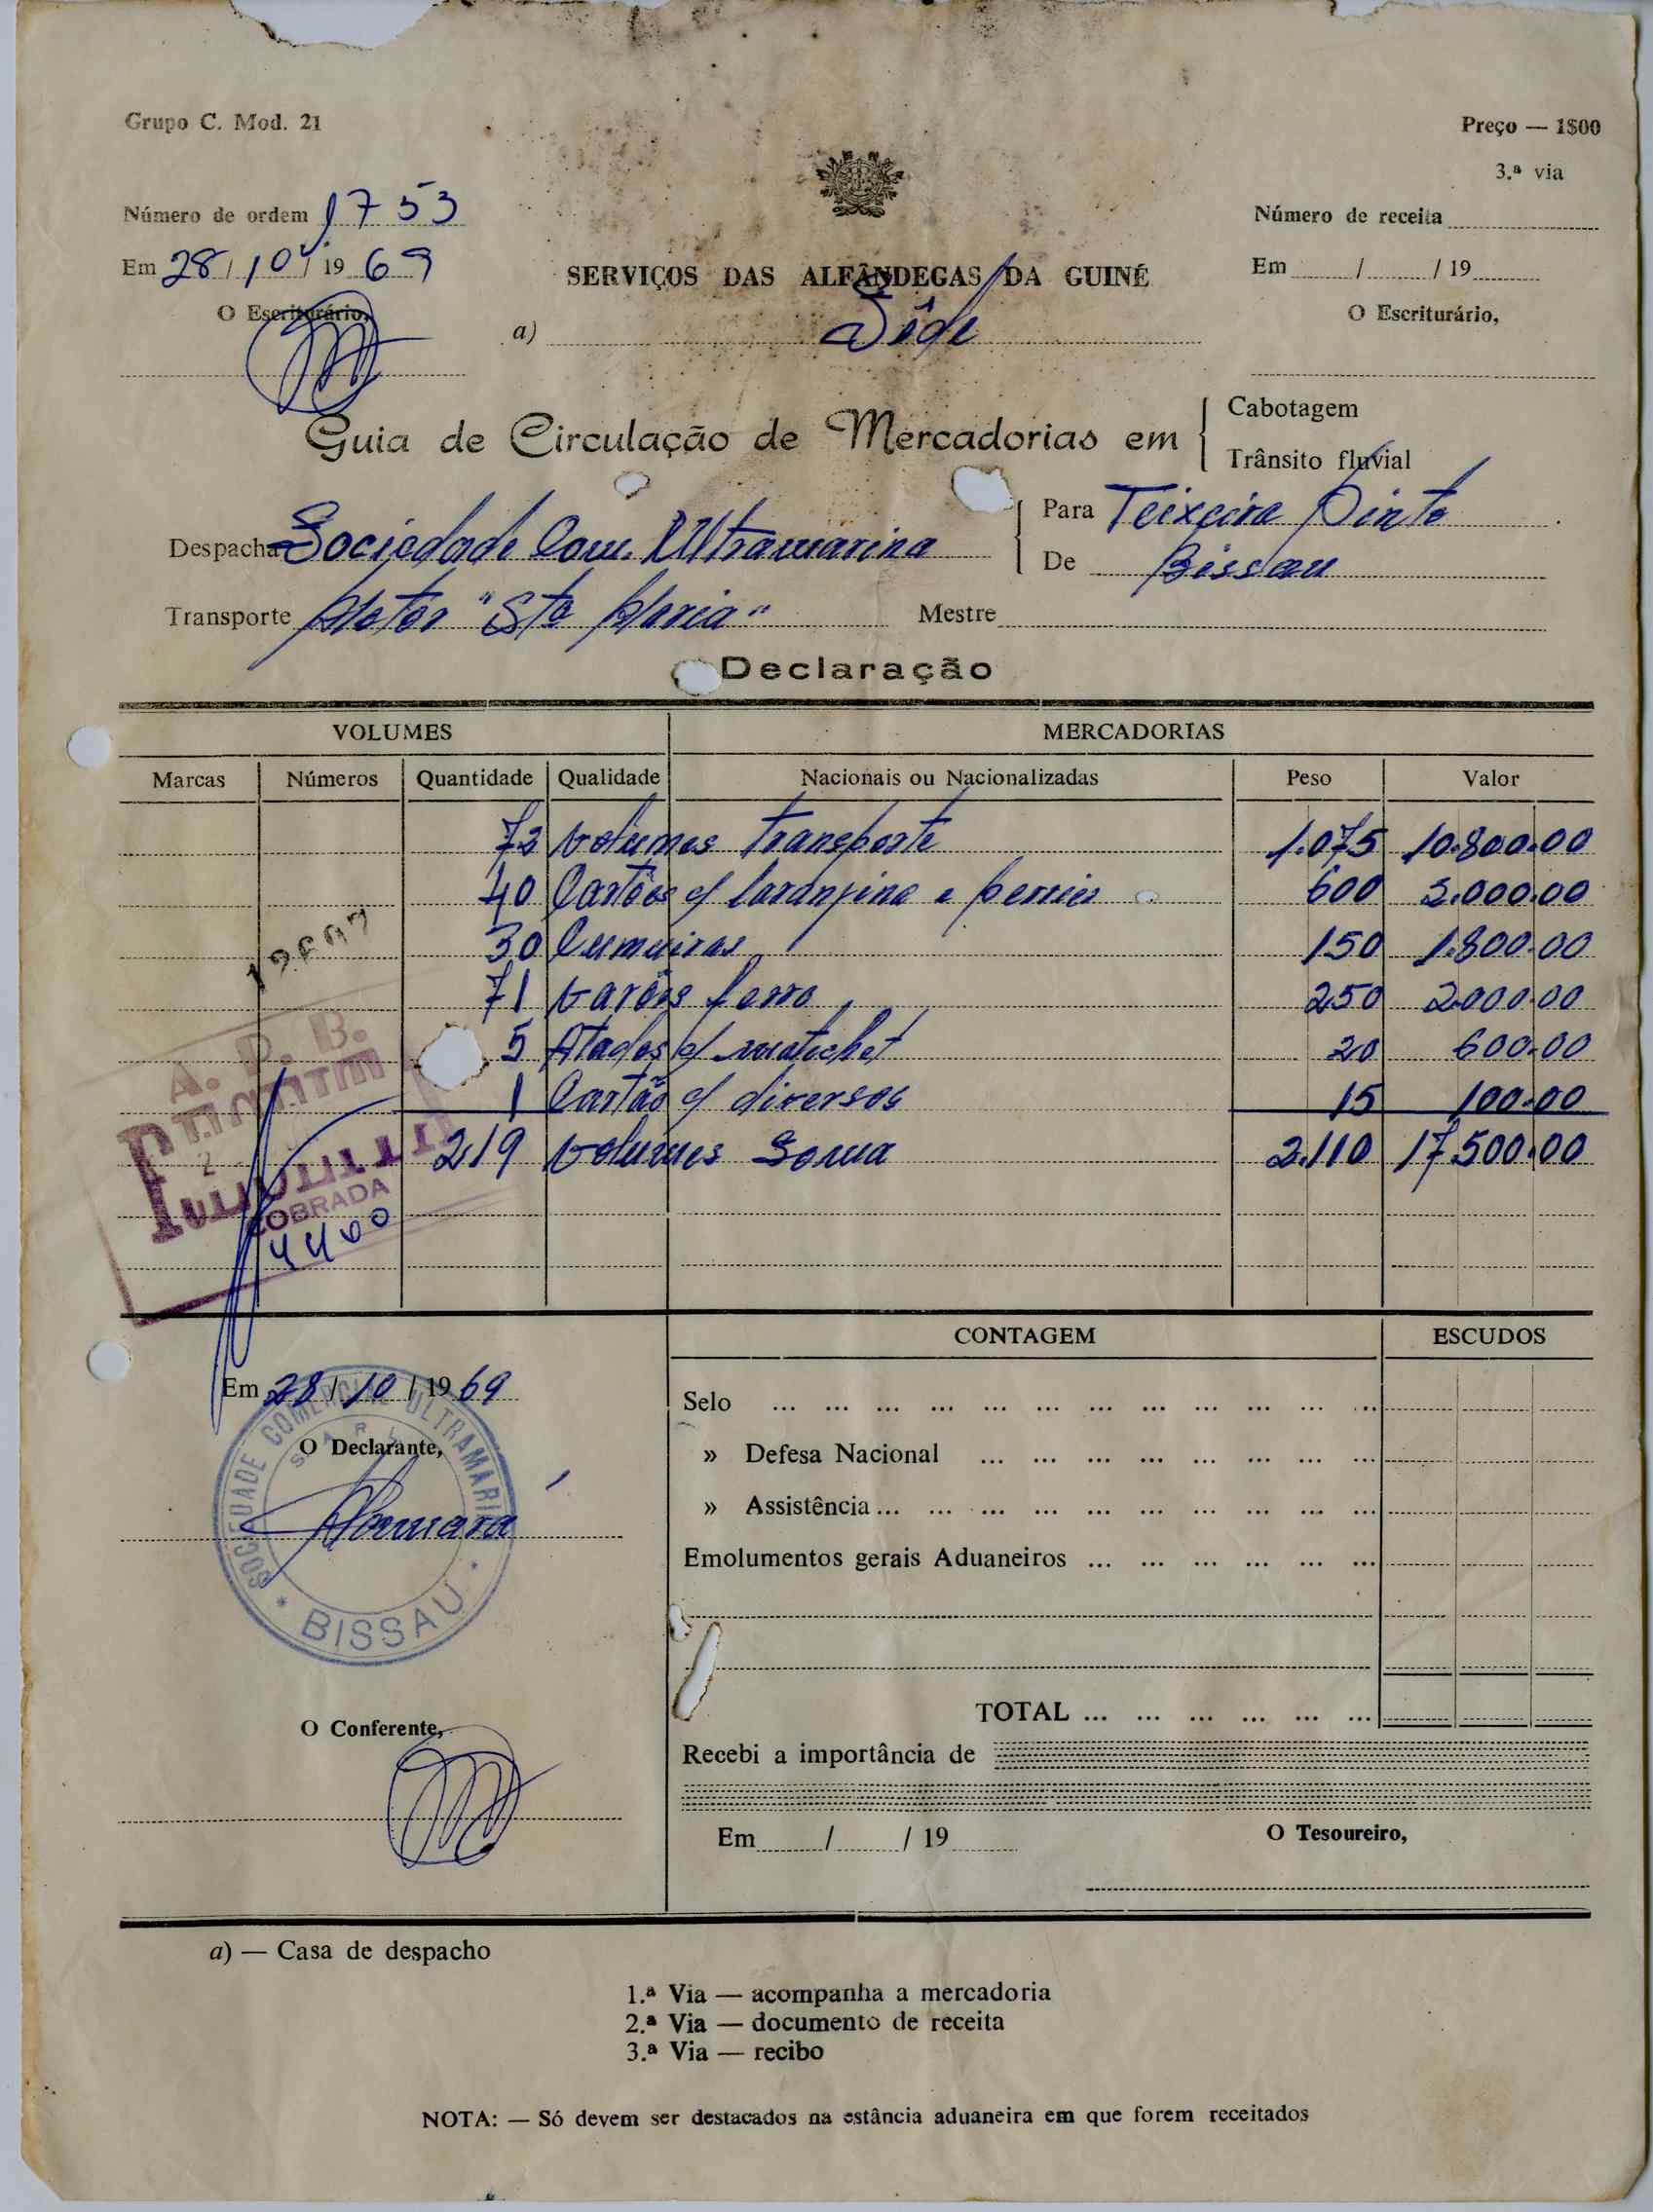 Grupo C. Mod. 21
Preço — 1$00
3.ª via
Número de ordem 1753
Número de receita
Em 28/10/1969
SERVIÇOS DAS ALFÂNDEGAS DA GUINÉ
Em / / 19
O Escriturário,
a) Séde
O Escriturário,
Guia de Circulação de Mercadorias em
Cabotagem
Trânsito fluvial
Despacha Sociedade Com. Ultramarina
Para Teixeira Pinto
De Bissau
Transporte Motor "Sta Maria"
Mestre
Declaração
VOLUMES MERCADORIAS
Marcas Números Quantidade Qualidade Nacionais ou Nacionalizadas Peso Valor
72 Volumes transporte 1.075 10.800.00
40 Cartões c/ laranjina e perrier 600 2.000.00
30 Cumieiras 150 1.800.00
71 Varões ferro 250 2.000.00
5 Atados c/ 20 600.00
1 Cartão c/ diversos 15 100.00
219 Volumes Soma 2.110 17.500.00
A. P. B.
COBRADA
CONTAGEM ESCUDOS
Em 28/10/1969
Selo
O Declarante,
» Defesa Nacional
» Assistência
SOCIEDADE COMERCIAL ULTRAMARINA
S A R L
BISSAU
Emolumentos gerais Aduaneiros
TOTAL
O Conferente,
Recebi a importância de
Em / / 19
O Tesoureiro,
a) — Casa de despacho
1.ª Via — acompanha a mercadoria
2.ª Via — documento de receita
3.ª Via — recibo
NOTA: — Só devem ser destacados na estância aduaneira em que forem receitados